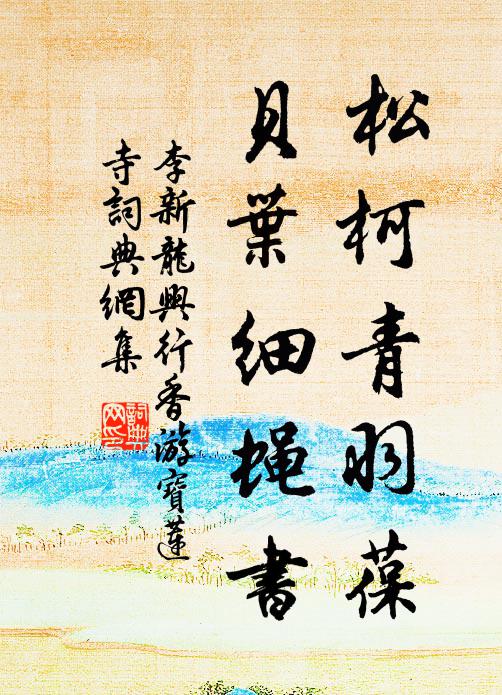 松柯青羽葆
貝葉细蝇書
李新龍興行香游寶蓮
寺詞典網集
詞典网印